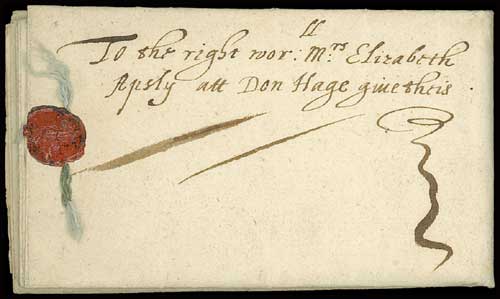 To the right wor:ll Mrs Elizabeth
Apsly att Don Hage give theis